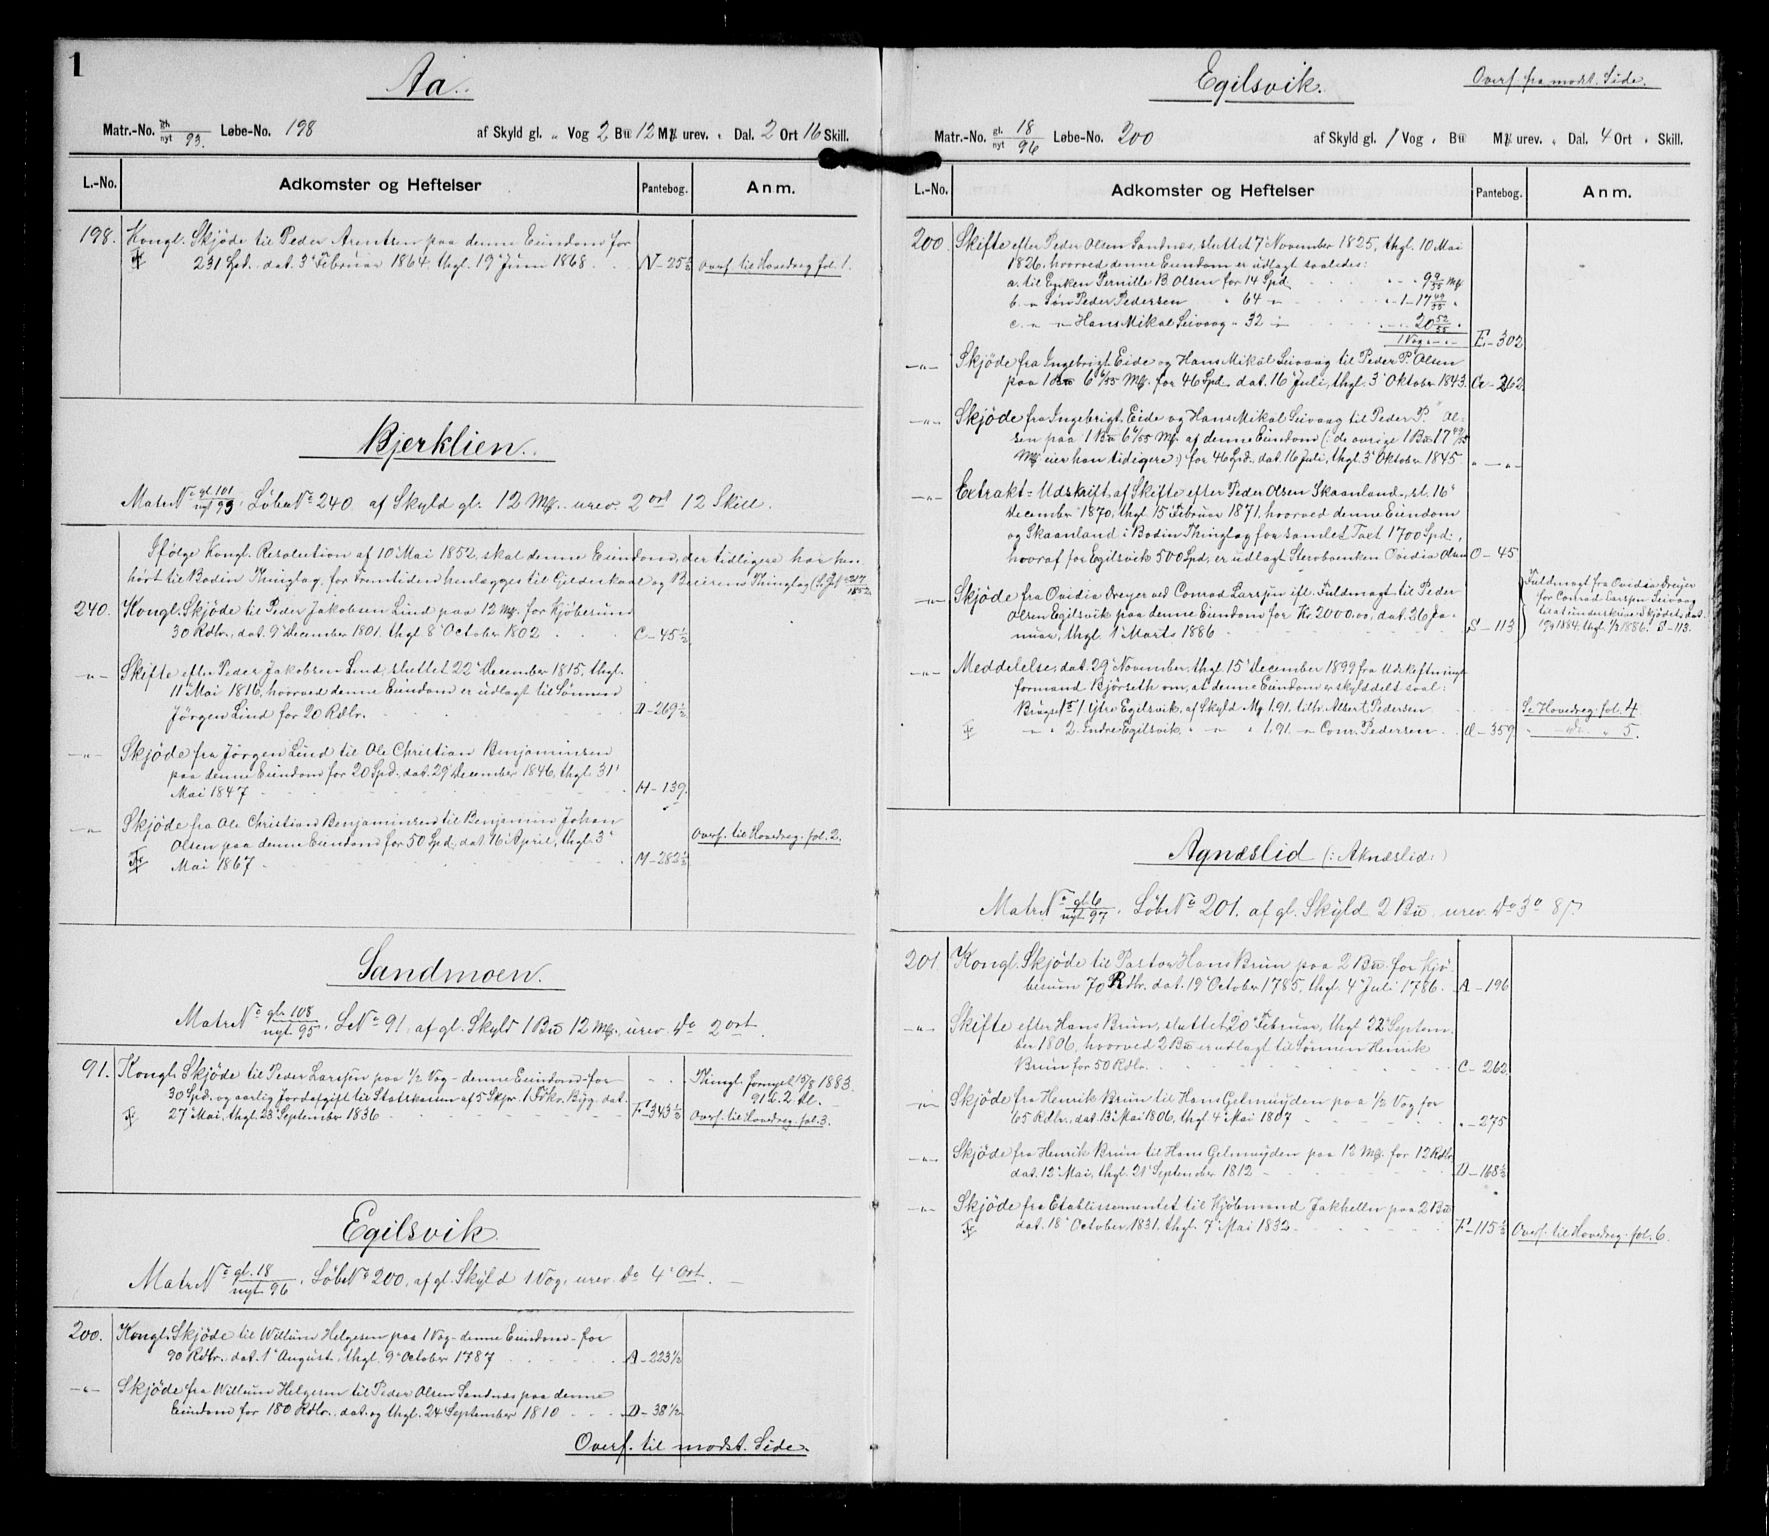 1
Aa.
Matr.-No. gl./nyt 93. Løbe-No. 198 af Skyld gl. „ Vog 2 Bu 12 M℔ urev. „ Dal. 2 Ort 16 Skill.
L.-No. Adkomster og Heftelser Pantebog. Anm.
198. Kongl. Skjöde til Peder Arentsen paa denne Eiendom for
231 Spd. dat. 3' Februar 1864, thgl. 19' Juni 1868. N-25½ Overf. til Hovedreg. fol. 1.
Bjerklien.
Matr No gl. 101/nyt 93, Löbe No 240 af Skyld gl. 12 M℔. urev. 2 ort 12 Skill.
Ifölge Kongl. Resolution af 10' Mai 1852, skal denne Eiendom, der tidligere har hen-
hört til Bodin Thinglag, for Fremtiden henlægges til Gildeskaal og Beierens Thinglag
240. Kongl. Skjöde til Peder Jakobsen Lind paa 12 M℔. for Kjöbesum
30 Rdlr., dat. 9' December 1801, thgl. 8' October 1802 C-45½
-"- Skifte efter Peder Jakobsen Lind, sluttet 22' December 1815, thgl.
11' Mai 1816, hvorved denne Eiendom er udlagt til Sönnen
Jörgen Lind for 20 Rdlr. D-269½
-"- Skjöde fra Jörgen Lund til Ole Christian Benjaminsen
paa denne Eiendom for 20 Spd. dat. 29' December 1846, thgl. 31'
Mai 1847 H-139.
-"- Skjöde fra Ole Christian Benjaminsen til Benjamin Johan
Olsen paa denne Eiendom for 50 Spd, dat. 16' April, thgl. 3' Overf. til Hovedreg. fol. 2.
Mai 1867 M-282½
Sandmoen.
Matr No gl. 108/nyt 95, L No 91, af gl. Skyld 1 Bu 12 M℔, urev. Do 2 ort.
91. Kongl. Skjöde til Peder Larssen paa 1/2 Vog - denne Eiendom - for Thingl. fornyet 15/8 1883.
30 Spd. og aarlig Jordafgift til Statskassen af 5 Skjpr. 1 Fdkr. Byg. dat.
27' Mai, thgl. 23' September 1836 F1 343½ Overf. til Hovedreg. fol. 3.
Egilsvik
Matr No gl. 18/nyt 96, Löbe No 200, af gl. Skyld 1 Vog, urev. Do 4 Ort.
200. Kongl. Skjöde til Willum Helgesen paa 1 Vog - denne Eiendom - for
90 Rdlr., dat. 1' August, thgl. 9' October 1787 A-223½
-"- Skjöde fra Willum Helgesen til Peder Olsen Sandnes paa denne
Eiendom for 180 Rdlr., dat. og thgl. 24' September 1810 D-38½
Overf. til modst. Side.
Egilsvik.
Overf. fra modst. Side.
Matr.-No. gl. 18/nyt 96 Løbe-No. 200 af Skyld gl. 1 Vog „ Bu M℔ urev. „ Dal. 4 Ort „ Skill.
L.-No. Adkomster og Heftelser Pantebog. Anm.
200. Skifte efter Peder Olsen Sandnes, sluttet 7' November 1825, thgl. 10 Mai
1826, hvorved denne Eiendom er udlagt saaledes:
a. til Enken Pernille B. Olsen for 14 Spd „ - „ 9 9/55 M℔
b. " Søn Peder Pedersen " 64 " „ - 1 - 17 49/55 „
c. " " Hans Mikal Seivaag " 32 " „ - „ 20 52/55 „
1 Vog „ - „ E-302
-"- Skjöde fra Ingebrigt Eide og Hans Mikal Seivaag til Peder P. Olsen
paa 1 Bu 6 6/55 M℔. for 46 Spd, dat. 16' Juli, thgl. 3' Oktober 1843. G-262
-"- Skjöde fra Ingebrigt Eide og Hans Mikal Seivaag til Peder P. Ol-
sen paa 1 Bu 6 6/55 M℔. af denne Eiendom (: de övrige 1 Bu 17 49/55
M℔ eier han tidigere :) for 46 Spd., dat. 16 Juli, thgl. 3' Oktober 1845 „-„
-"- Extrakt-Udskrift af Skifte efter Peder Olsen Skaanland, sl. 16'
December 1870, thgl 15' Februar 1871, hvorved denne Eiendom
og Skaanland i Bodin Thinglag for samlet Taxt 1700 Spd.,
hvoraf for Egilsvik 500 Spd, er udlagt Stervboenken Ovidia Olsen O-45
-"- Skjöde fra Ovidia Dreyer ved Conrad Larssen ifl. Fuldmagt til Peder
Olsen Egilsvik paa denne Eiendom for Kr. 2000.00, dat. 26 Ja-
nuar, thgl. 1' Marts 1886 S-113
Fuldmagt fra Ovidia Dreyer
for Conrad Larssen Seivaag
til at underskrive Skjödet, dat.
1884, thgl. 1/3 1886. S-113.
-"- Meddelelse, dat. 29' November, thgl. 15' December 1899 fra Udskiftnings-
formand Björseth om, at denne Eiendom er skylddelt saal:
Brugsno 1 Ytre Egilsvik, af Skyld M℔ 1.91, tilh. Albert Pedersen Se Hovedreg. fol. 4
" " 2 Indre Egilsvik, " " " 1.91 " Conr. Pedersen. U-359 " do " 5.
Agnæslid (: Aknæslid :)
Matr No gl. 6/nyt 97, Löbe No 201, af gl. Skyld 2 Bu urev. Do 3 o 8 ſ.
201. Kongl. Skjöde til Pastor Hans Brun paa 2 Bu for Kjö-
besum 70 Rdlr. dat. 19' October 1785, thgl. 4' Juli 1786. A-196
-"- Skifte efter Hans Brun, sluttet 20' Februar, thgl 22' Septem-
ber 1806, hvorved 2 Bu er udlagt til Sönnen Henrik
Brun for 50 Rdlr. C-262
-"- Skjöde fra Henrik Brun til Hans Gelmuyden paa 1/2 Vog for
65 Rdlr., dat. 13' Mai 1806, thgl 4' Mai 1807 „-275
-"- Skjöde fra Henrik Brun til Hans Gelmuyden paa 12 M℔. for 12 Rdlr
dat. 12' Mai, thgl. 21' September 1812 D-168½
-"- Skjöde fra Etablissementet til Kjöbmand Jakhelln paa 2 Bu
dat. 18' October 1831, thgl. 7' Mai 1832 F1-115½ Overf. til Hovedreg. fol. 6.